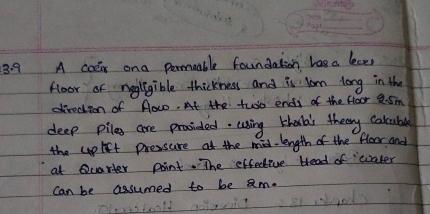 3.9 A weir on a permeable foundation has a level
floor of negligible thickness and is 10m long in the
direction of flow. At the two ends of the floor 2.5m
deep piles are provided. using khosla's theory calculate
the uplift pressure at the mid-length of the floor and
at Quarter point. The effective Head of water
can be assumed to be 2m.